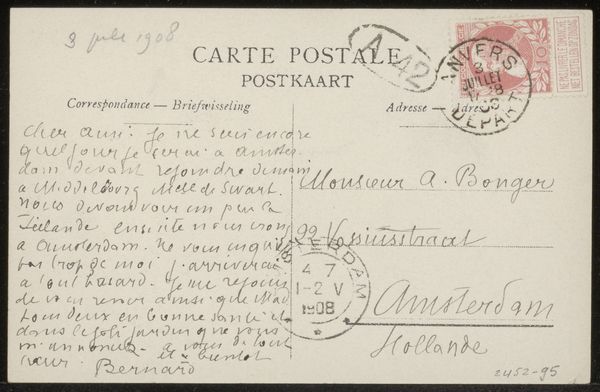 3 juli 1908
CARTE POSTALE
POSTKAART
A 42
ANVERS
3
JUILLET
08
DÉPART
10
NE PAS LIVRER LE DIMANCHE
NIET BESTELLEN OP ZONDAG
Correspondance — Briefwisseling
Adresse — Adres
Cher ami. Je ne sais encore
quel jour je serai à Amster-
dam devant rejoindre demain
à Middelbourg Melle de Swart.
Nous devons voir un peu la
Zélande ensuite nous irons
à Amsterdam. Ne vous inquiétez
pas trop de moi j'arriverai
à tout hasard. Je me réjouis
de vous revoir ainsi que
tous deux en bonne santé et
dans le joli jardin que vous
m'annoncez. à vous de tout
cœur. et à bientôt
Bernard
Monsieur A. Bonger
99 Vossiusstraat
Amsterdam
Hollande
AMSTERDAM
4 7
1-2 V
1908
2452-95